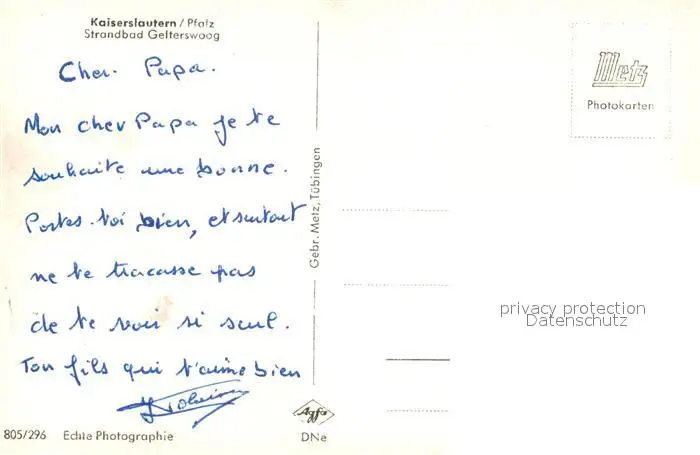 Kaiserslautern / Pfalz
Strandbad Gelterswoog
Cher. Papa.
Mon cher Papa je te
souhaite une bonne.
Portes-toi bien, et surtout
ne te tracasse pas
de te voir si seul.
Ton fils qui t'aime bien
805/296 Echte Photographie
Gebr. Metz, Tübingen
Agfa
DNe
Metz
Photokarten
privacy protection
Datenschutz